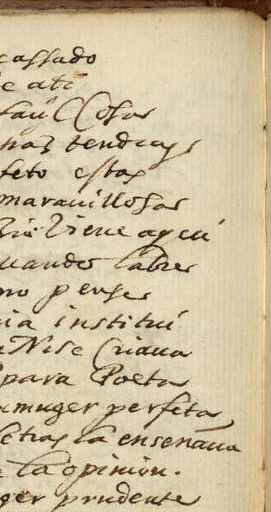 cassado
e ati
façil Cosas
nas tendras
feto estas
marauillosas
Viene aqui
uando labres
no penses
ia institui
Nise Criaua
para Poeta
muger perfeta
letras la enseñaua
la opinion.
ger prudente